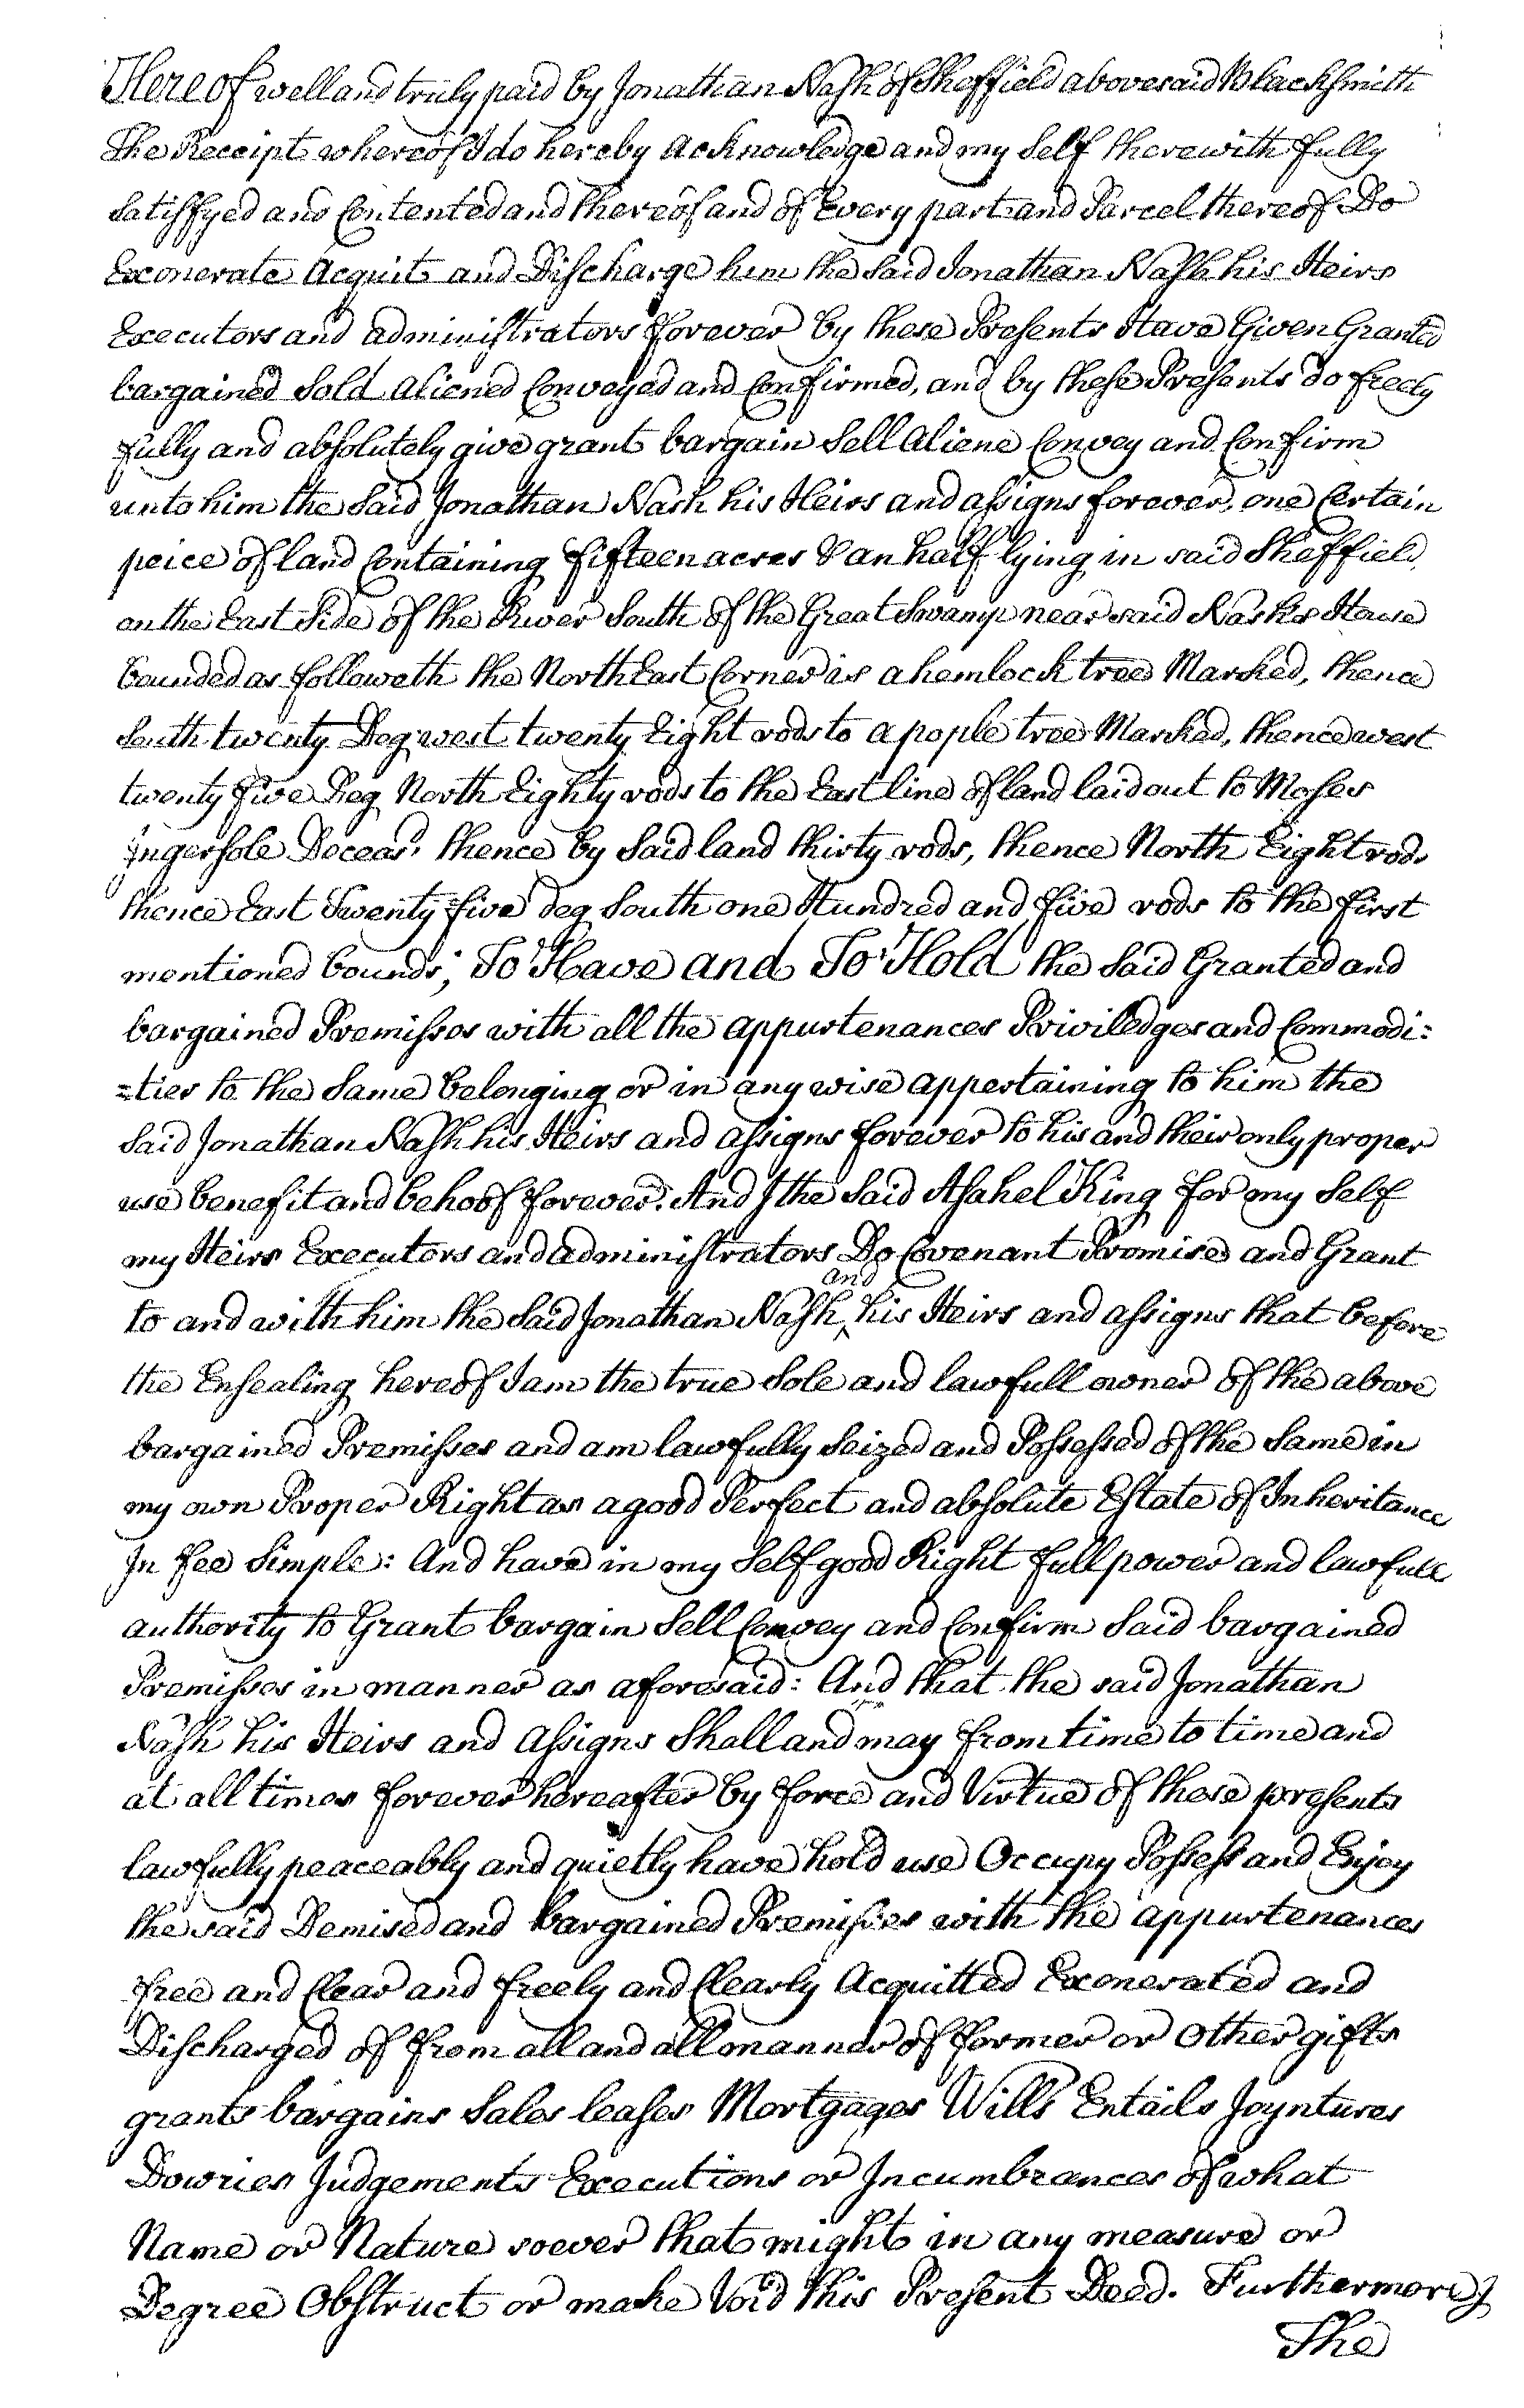 Hereof well and truly paid by Jonathan Nash of Sheffield abovesaid Blacksmith
The Receipt whereof I do hereby acknowledge and my self therewith fully
satisfyed and Contented and thereof and of Every part and Parcel thereof Do
Exonerate Acquit and Discharge him the said Jonathan Nash his Heirs
Executors and administrators forever by these Presents Have Given Granted
bargained Sold aliened Conveyed and Confirmed, and by these Presents do freely
fully and absolutely give grant bargain Sell aliene Convey and Confirm
unto him the Said Jonathan Nash his Heirs and assigns forever, one Certain
peice of land Containing fifteen acres & an half lying in said Sheffield
on the East Side of the River South of the Great Swamp near said Nashs House
bounded as followeth the North East Corner is a hemlock tree Marked, thence
South twenty Deg west twenty Eight rods to a pople tree Marked, thence west
twenty five Deg North Eighty rods to the East line of land laid out to Moses
Ingersole Deceas'd thence by Said land thirty rods, thence North Eight rods
thence East Twenty five deg South one Hundred and five rods to the first
mentioned bounds; To Have and To Hold the Said Granted and
bargained Premisses with all the appurtenances Priviledges and Commodi=
=ties to the Same belonging or in any wise appertaining to him the
Said Jonathan Nash his Heirs and assigns forever to his and their only proper
use benefit and behoof forever. And I the Said Asahel King for my Self
my Heirs Executors and administrators Do Covenant Promise and Grant
to and with him the Said Jonathan Nash and his Heirs and assigns that before
the Ensealing hereof I am the true Sole and lawfull owner of the above
bargained Premisses and am lawfully Seized and Possessed of the Same in
my own Proper Right as a good Perfect and absolute Estate of Inheritance
In fee Simple: And have in my Self good Right full power and lawfull
authority to Grant bargain Sell Convey and Confirm Said bargained
Premisses in manner as aforesaid: And that the said Jonathan
Nash his Heirs and Assigns Shall and may from time to time and
at all times forever hereafter by force and Virtue of these presents
lawfully peaceably and quietly have hold use Occupy Possess and Enjoy
the said Demised and bargained Premisses with the appurtenances
free and Clear and freely and Clearly Acquitted Exonerated and
Discharged of from all and all manner of former or other gifts
grants bargains Sales leases Mortgages Wills Entails Joyntures
Dowries Judgements Executions or Incumbrances of what
Name or Nature soever that might in any measure or
Degree Obstruct or make Void this Present Deed. Furthermore I
The